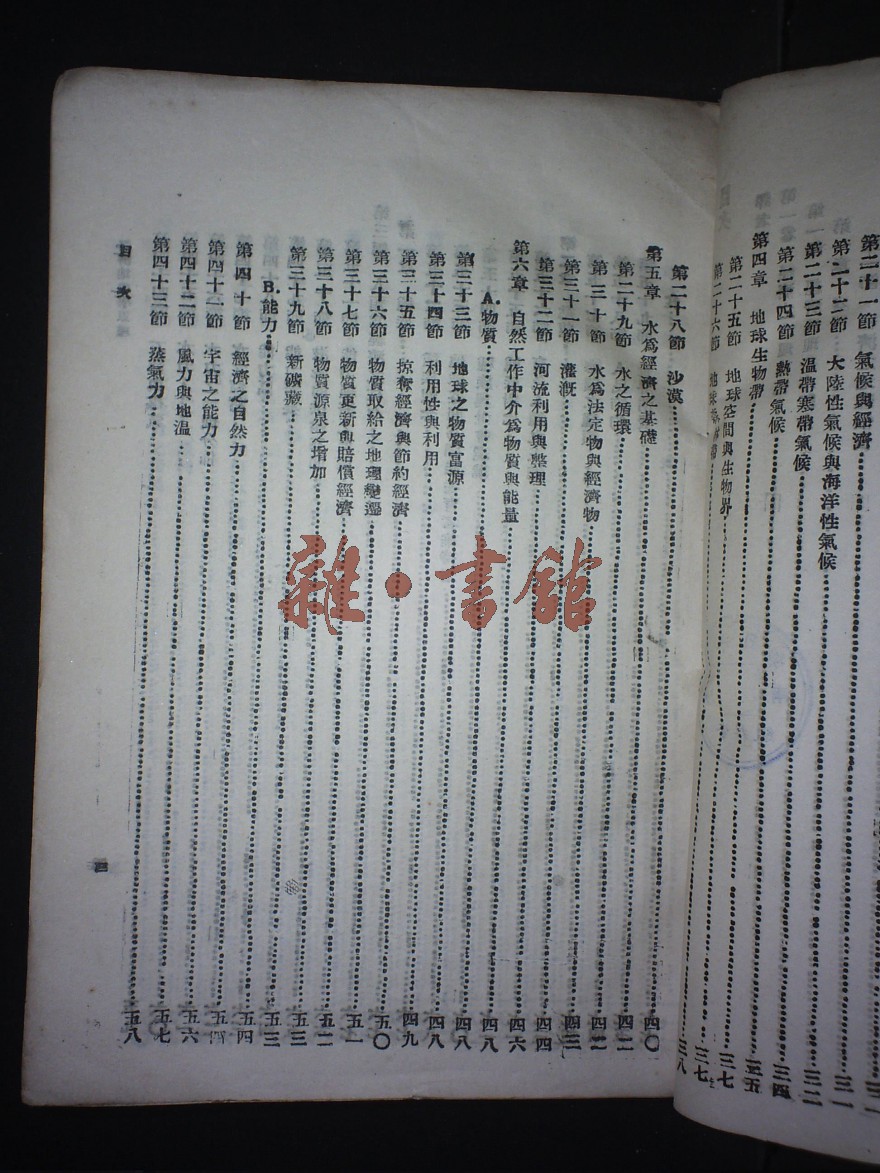 第二十一節 氣候與經濟 三一
第二十二節 大陸性氣候與海洋性氣候 三一
第二十三節 溫帶寒帶氣候 三二
第二十四節 熱帶氣候 三四
第四章 地球生物帶 三五
第二十五節 地球空間與生物界 三七
第二十六節 三七
三八
第二十八節 沙漠 四〇
第五章 水爲經濟之基礎 四二
第二十九節 水之循環 四二
第三十節 水爲法定物與經濟物 四三
第三十一節 灌漑 四四
第三十二節 河流利用與整理 四六
第六章 自然工作中介爲物質與能量 四八
A.物質 四八
第三十三節 地球之物質富源 四八
第三十四節 利用性與利用 四九
第三十五節 掠奪經濟與節約經濟 五〇
第三十六節 物質取給之地理變遷 五一
第三十七節 物質更新與賠償經濟 五二
第三十八節 物質源泉之增加 五三
第三十九節 新礦藏 五三
B.能力 五四
第四十節 經濟之自然力
第四十一節 宇宙之能力 五六
第四十二節 風力與地溫 五七
第四十三節 蒸氣力 五八
目次
三
雜·書館